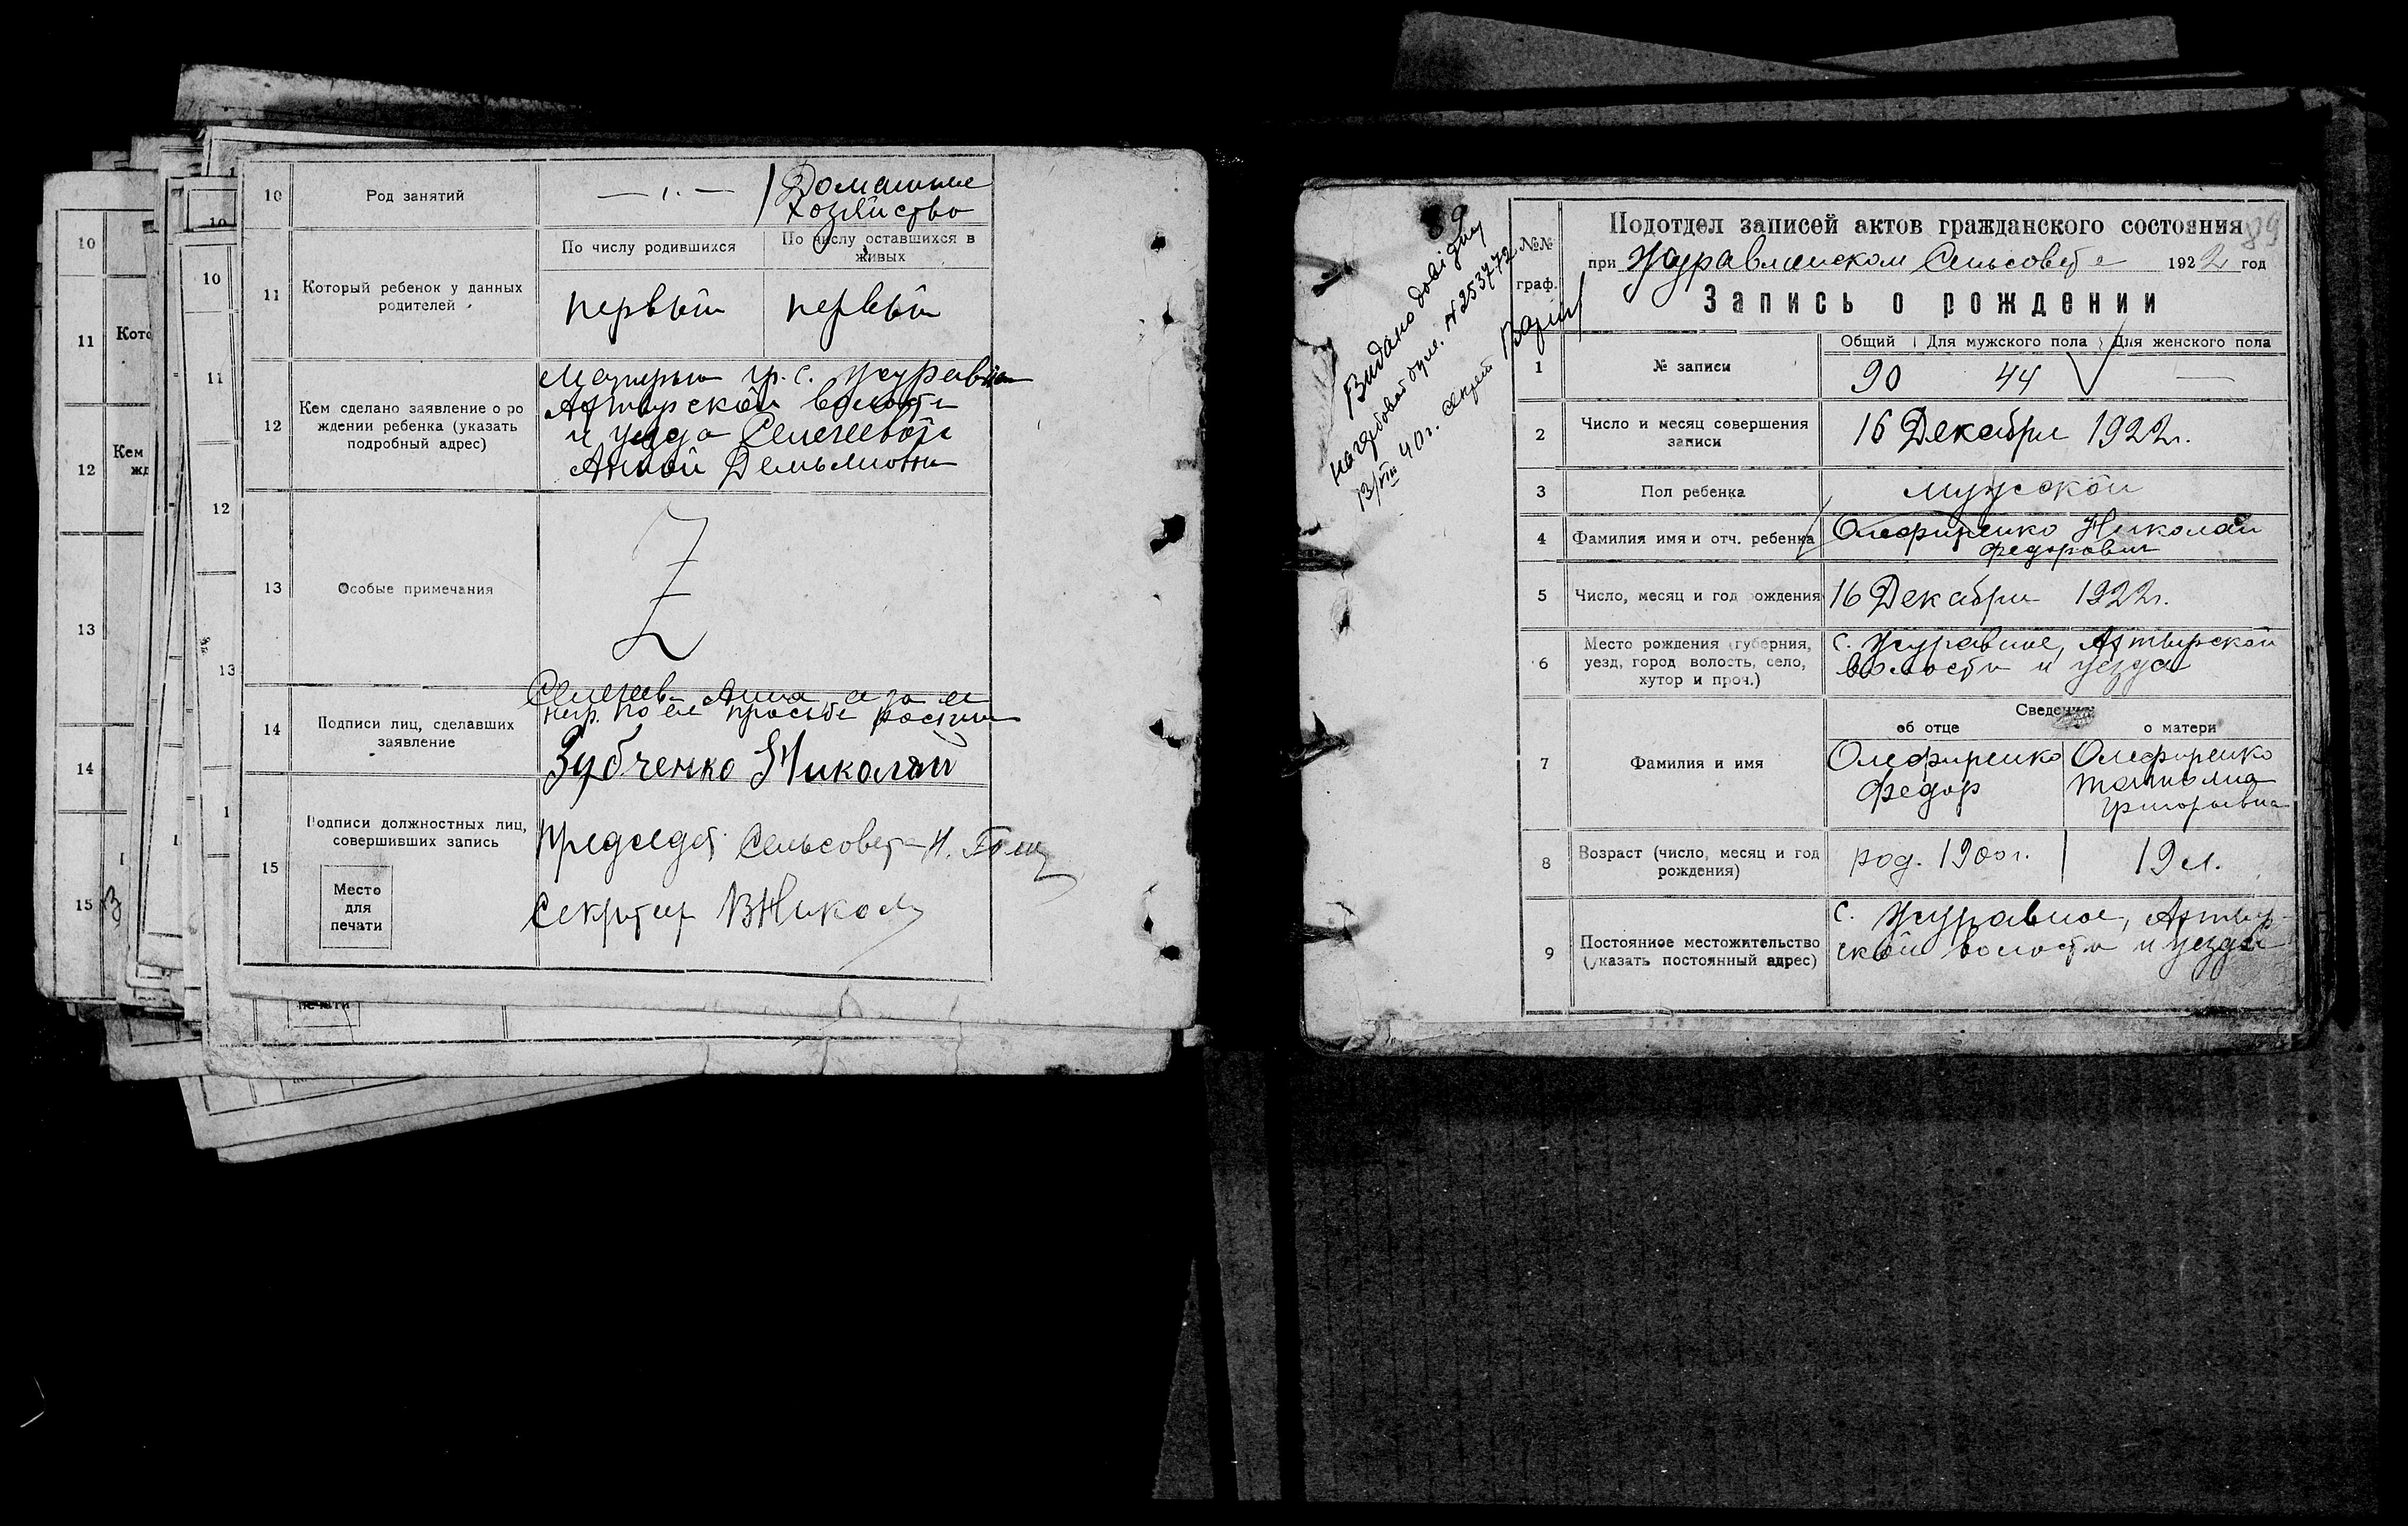 10 Род занятий — ı. — Домашнее
хозяйство
11 Который ребенок у данных
родителей
По числу родившихся
По числу оставшихся в
живых
первый первый
12 Кем сделано заявление о ро
ждении ребенка (указать
подробный адрес)
Матерью гр. с. Журавно
Ахтырской волости
и уезда
Анной Демьяновн
13 Особые примечания
Z
14 Подписи лиц, сделавших
заявление
Анна а за ея
негр. по ея просьбе росписи
Зубченко Николай
15 Подписи должностных лиц,
совершивших запись
Место
для
печати
Председат Сельсовета Н.
Секретар
10
11
12
13
14
15
10
11
12
13
печати
89
Видано довідку
13/VIII 40 г. секрет
№ 253772
№№
граф.
Подотдел записей актов гражданского состояния 89
при Журавлинском Сельсовете 1922 год
Запись о рождении
1 № записи
Общий Для мужского пола Для женского пола
90 44 —
2 Число и месяц совершения
записи
16 Декабря 1922 г.
3 Пол ребенка мужской
4 Фамилия имя и отч. ребенка Олефиренко Николай
Федорович
5 Число, месяц и год рождения 16 Декабря 1922 г.
6 Место рождения (губерния,
уезд, город волость, село,
хутор и проч.)
с. Журавное, Ахтырской
волости и уезда
Сведения
об отце о матери
7 Фамилия и имя
Олефиренко Федор
Олефиренко
Григорьевна
8 Возраст (число, месяц и год
рождения)
род. 1900 г. 19 л.
9 Постоянное местожительство
(указать постоянный адрес)
с. Журавное, Ахтыр-
ской волости и уезда